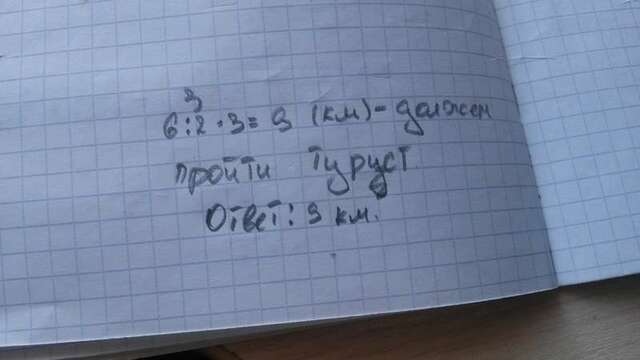 3
6:2·3=9 (км)-должен
пройти турист.
Ответ: 9 км.